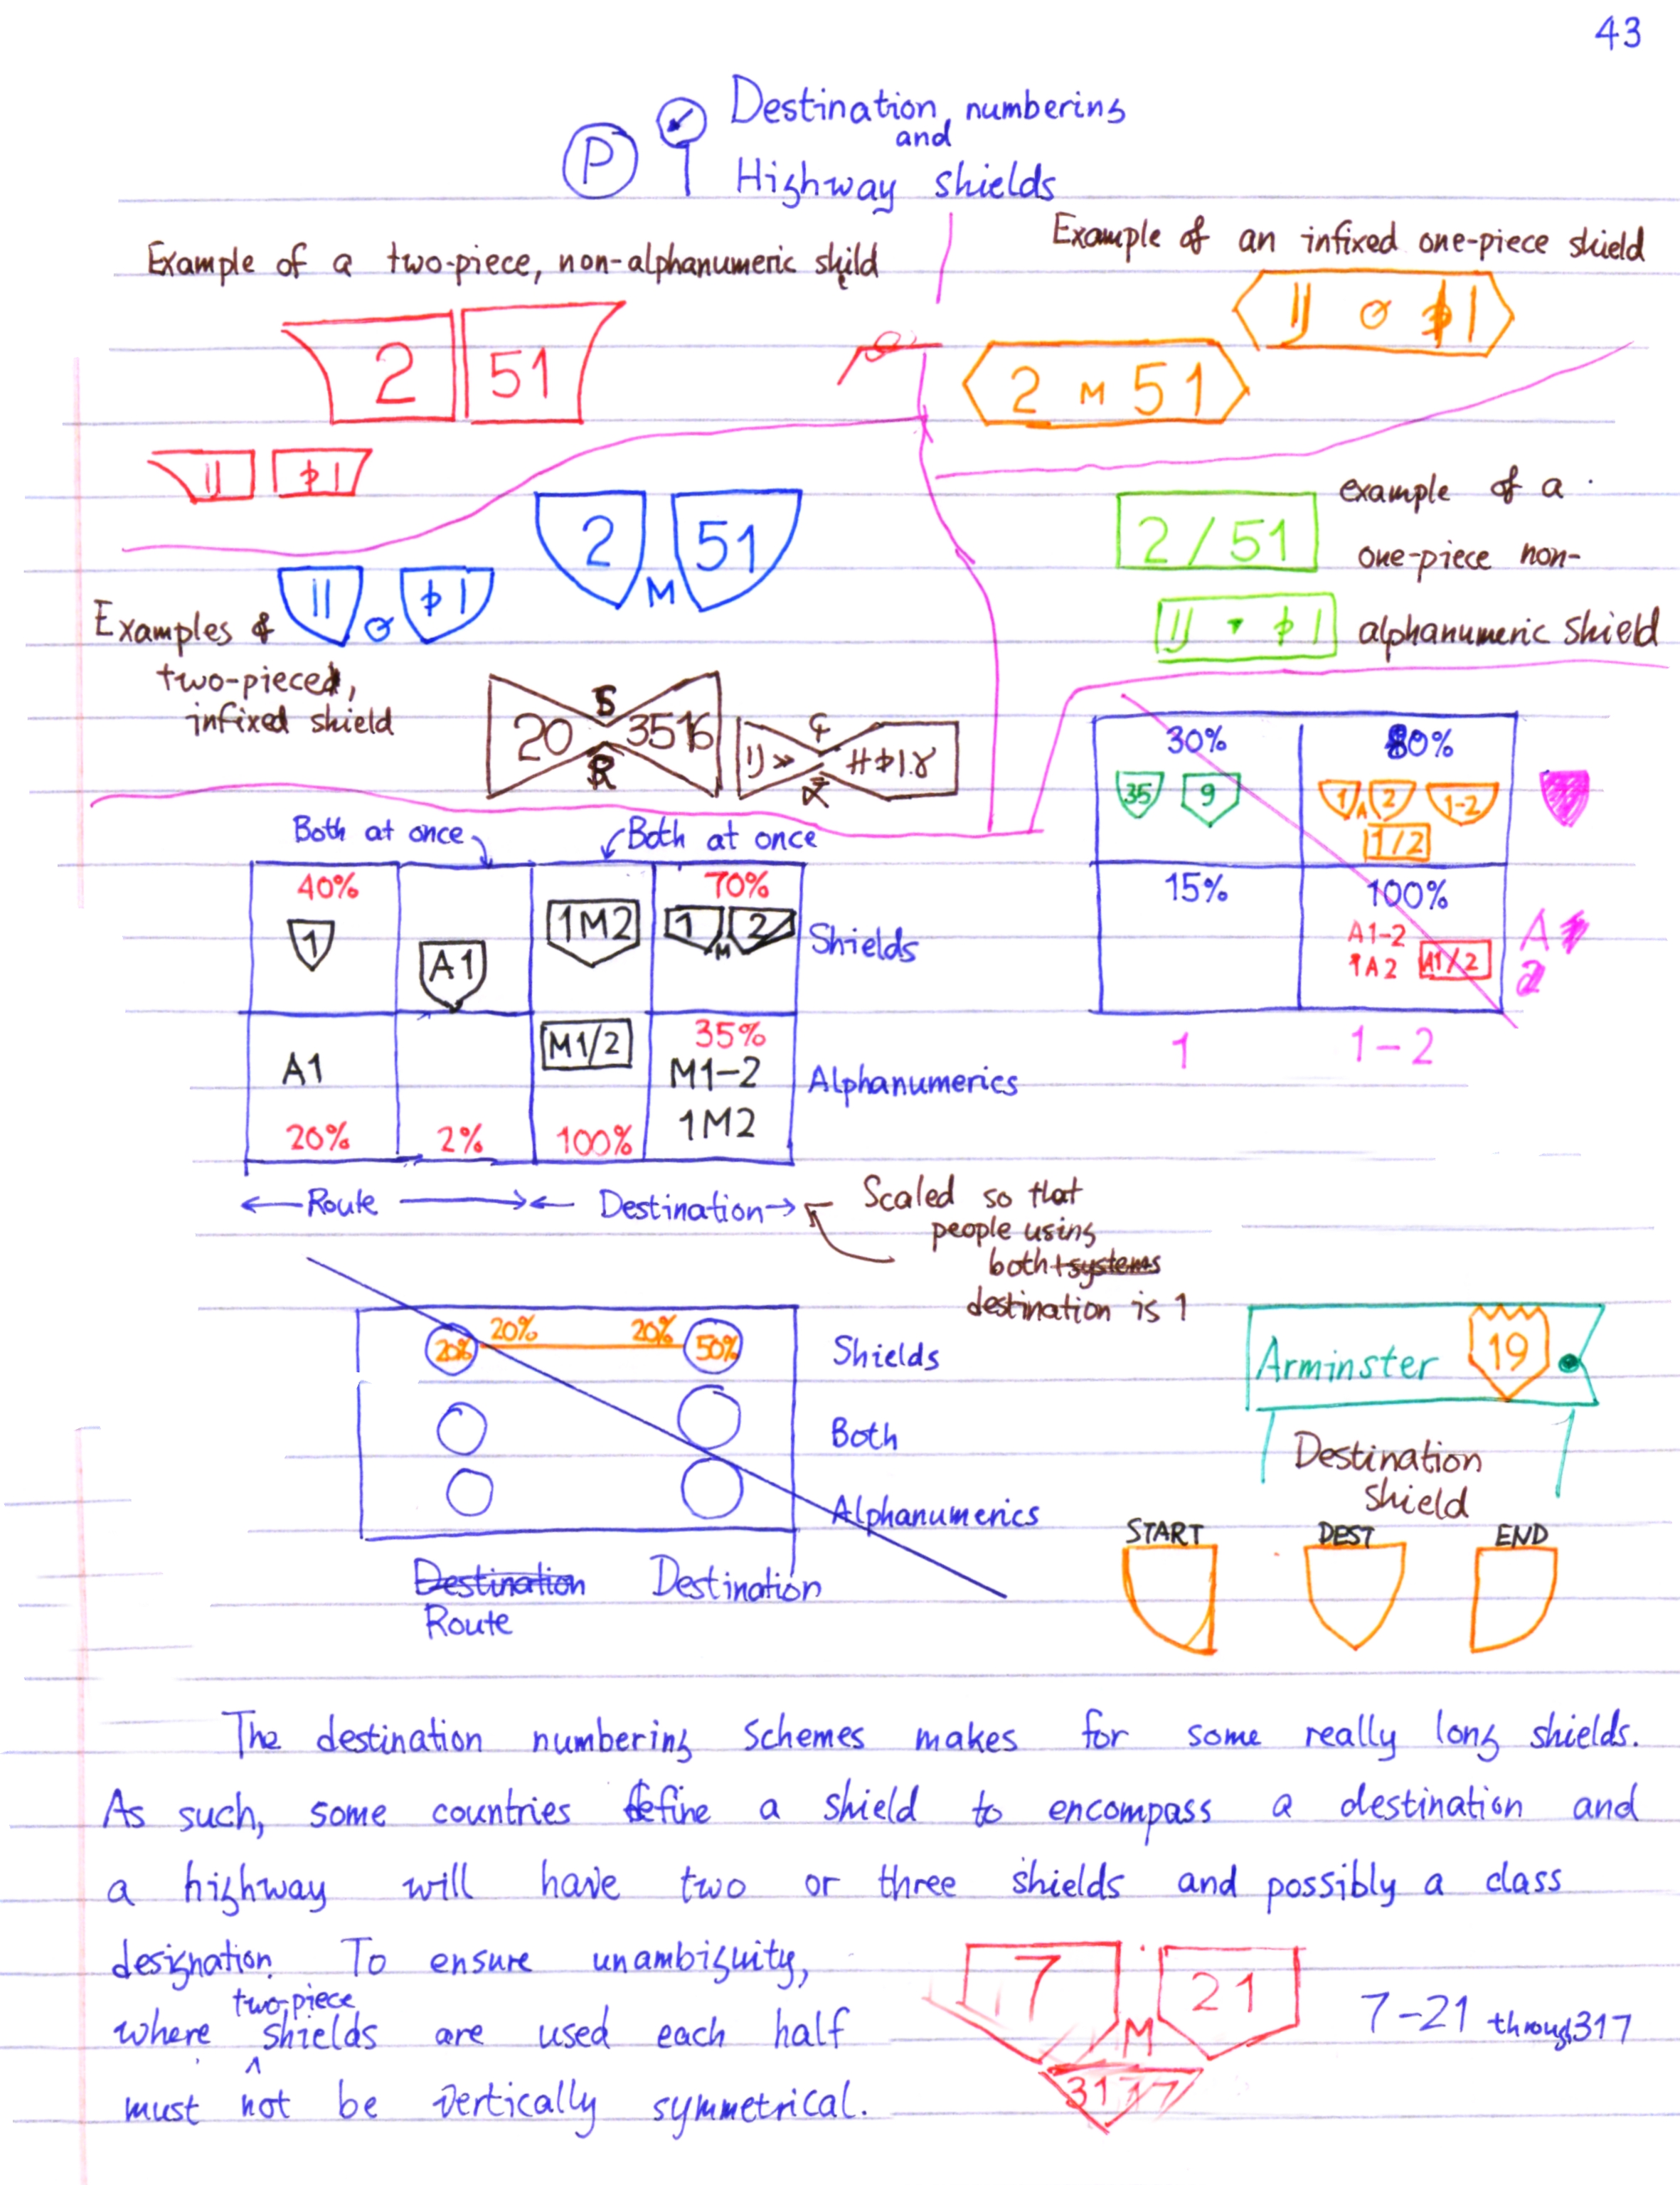 43
P
Destination numbering
and
Highway shields
Example of a two-piece, non-alphanumeric shild
e
Example of an infixed one-piece shield
2 51
2 M 51
example of a
2 / 51
one-piece non-
alphanumeric shield
2 M 51
Examples of
two-pieced,
infixed shield
20 S R 3516
30% 80%
35 9 1 A 2 1-2
1/2
15% 100%
A1-2
1A2 A1/2
A
2
1 1-2
Both at once Both at once
40% 70%
1 A1 1M2 1 M 2 Shields
35%
A1 M1/2 M1-2 Alphanumerics
1M2
20% 2% 100%
Route Destination
Scaled so that
people using
both systems
destination is 1
20% 20% 20% 50% Shields
Both
Alphanumerics
Destination Destination
Route
Arminster 19
Destination
shield
START DEST END
The destination numbering schemes makes for some really long shields.
As such, some countries define a shield to encompass a destination and
a highway will have two or three shields and possibly a class
designation. To ensure unambiguity,
two-piece
where ^ shields are used each half
must not be vertically symmetrical.
7 M 21
7-21 through 317